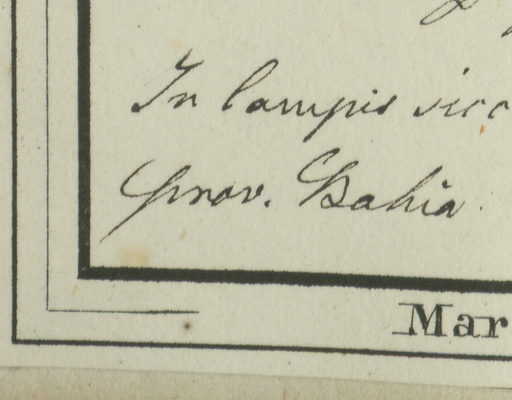 In campis sicc
prov. Bahia.
Mar